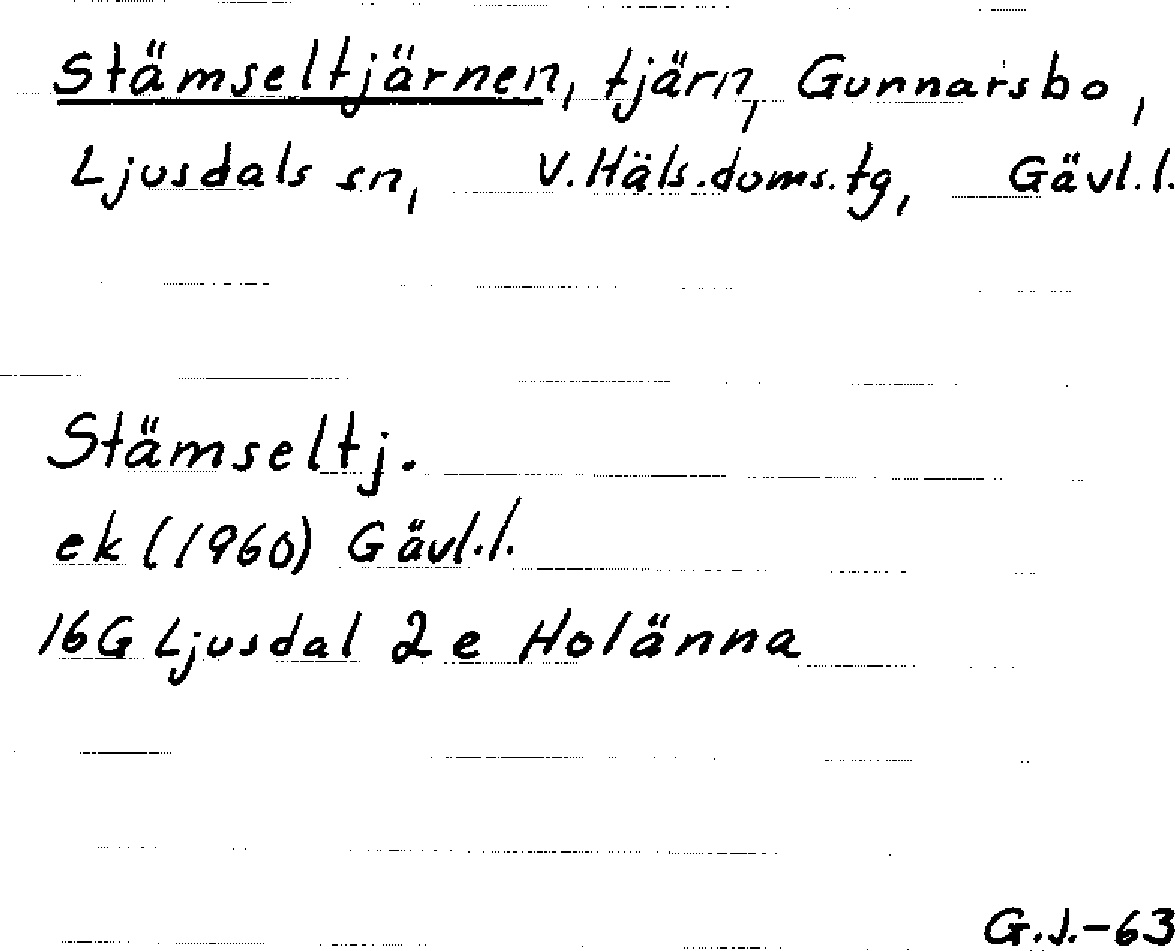 Stämseltjärnen, tjärn, Gunnarsbo,
Ljusdals sn, V.Häls.doms.tg, Gävl.l.
Stämseltj.
ek (1960) Gävl.l.
16G Ljusdal 2e Holänna
G.J.-63